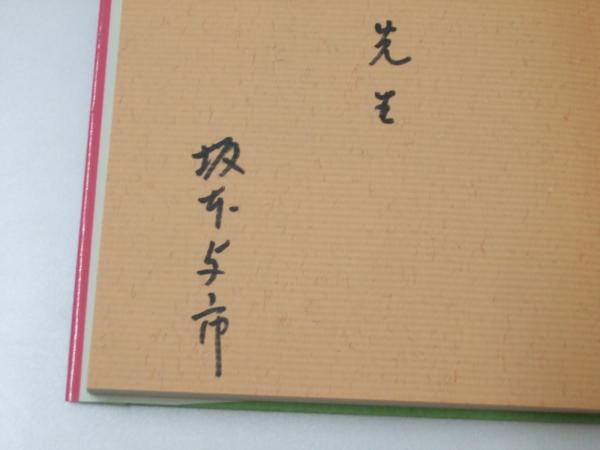 先生
坂本与市